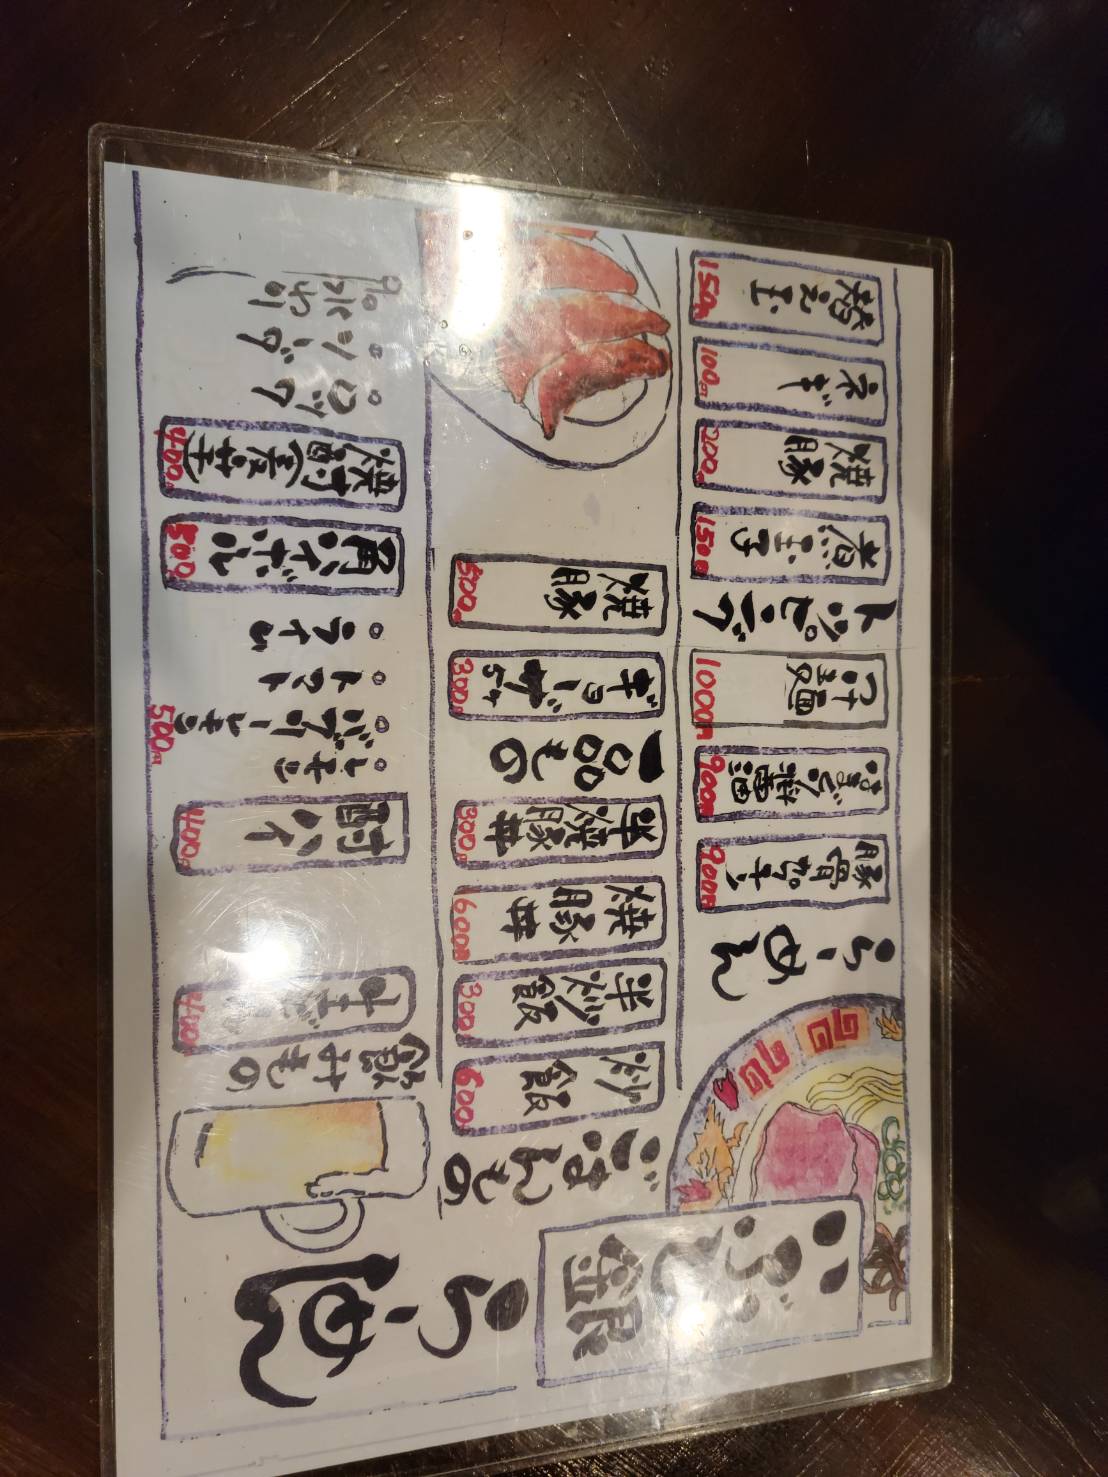 いぶし銀
らーめん
らーめん
豚骨カプチーノ
900円
はまぐり醤油
900円
つけ麺
1000円
トッピング
煮玉子
150円
焼豚
200円
ネギ
100円
替え玉
150円
ごはんもの
炒飯
600円
半炒飯
300円
焼豚丼
600円
半焼豚丼
300円
一品もの
ギョーザ5ケ
300円
焼豚
500円
飲みもの
生ビール
400円
酎ハイ
400円
○レモン
○バブリーレモン
500円
○トマト
○ライム
角ハイボール
500
焼酎(麦・芋)
400円
○ロック
○ソーダ
○水わり